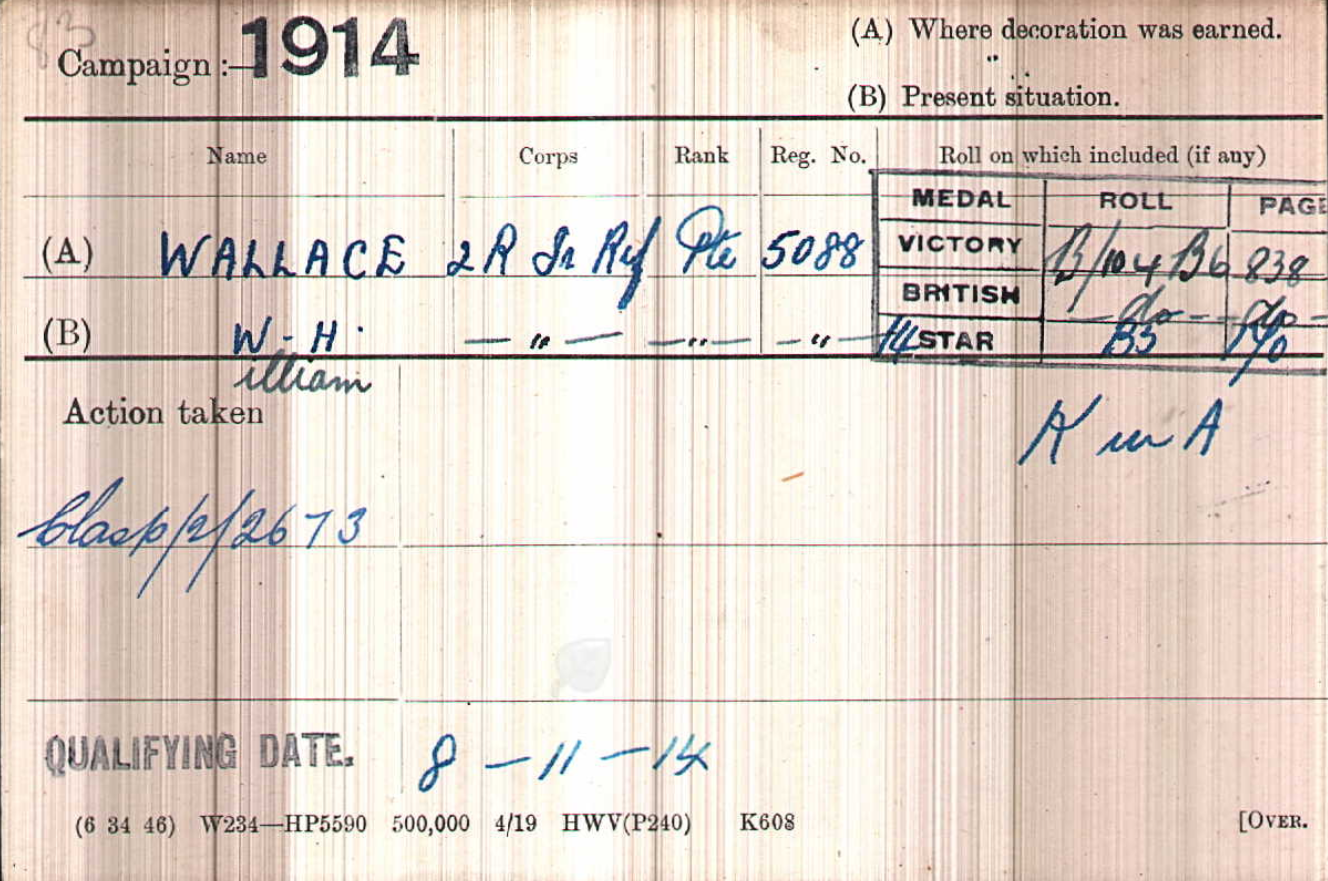 83
Campaign :— 1914
(A) Where decoration was earned.
(B) Present situation.
Name Corps Rank Reg. No. Roll on which included (if any)
MEDAL ROLL PAGE
(A) WALLACE 2 R Ir Rif Pte 5088 VICTORY B/104 B6 838
BRITISH — do — — do —
(B) W - H. — " — — " — — " — 14 STAR B5
illiam
Action taken
K in A
Clasp/2/2673
QUALIFYING DATE. 8 — 11 — 14
(6 34 46) W234—HP5590 500,000 4/19 HWV(P240) K608 [OVER.